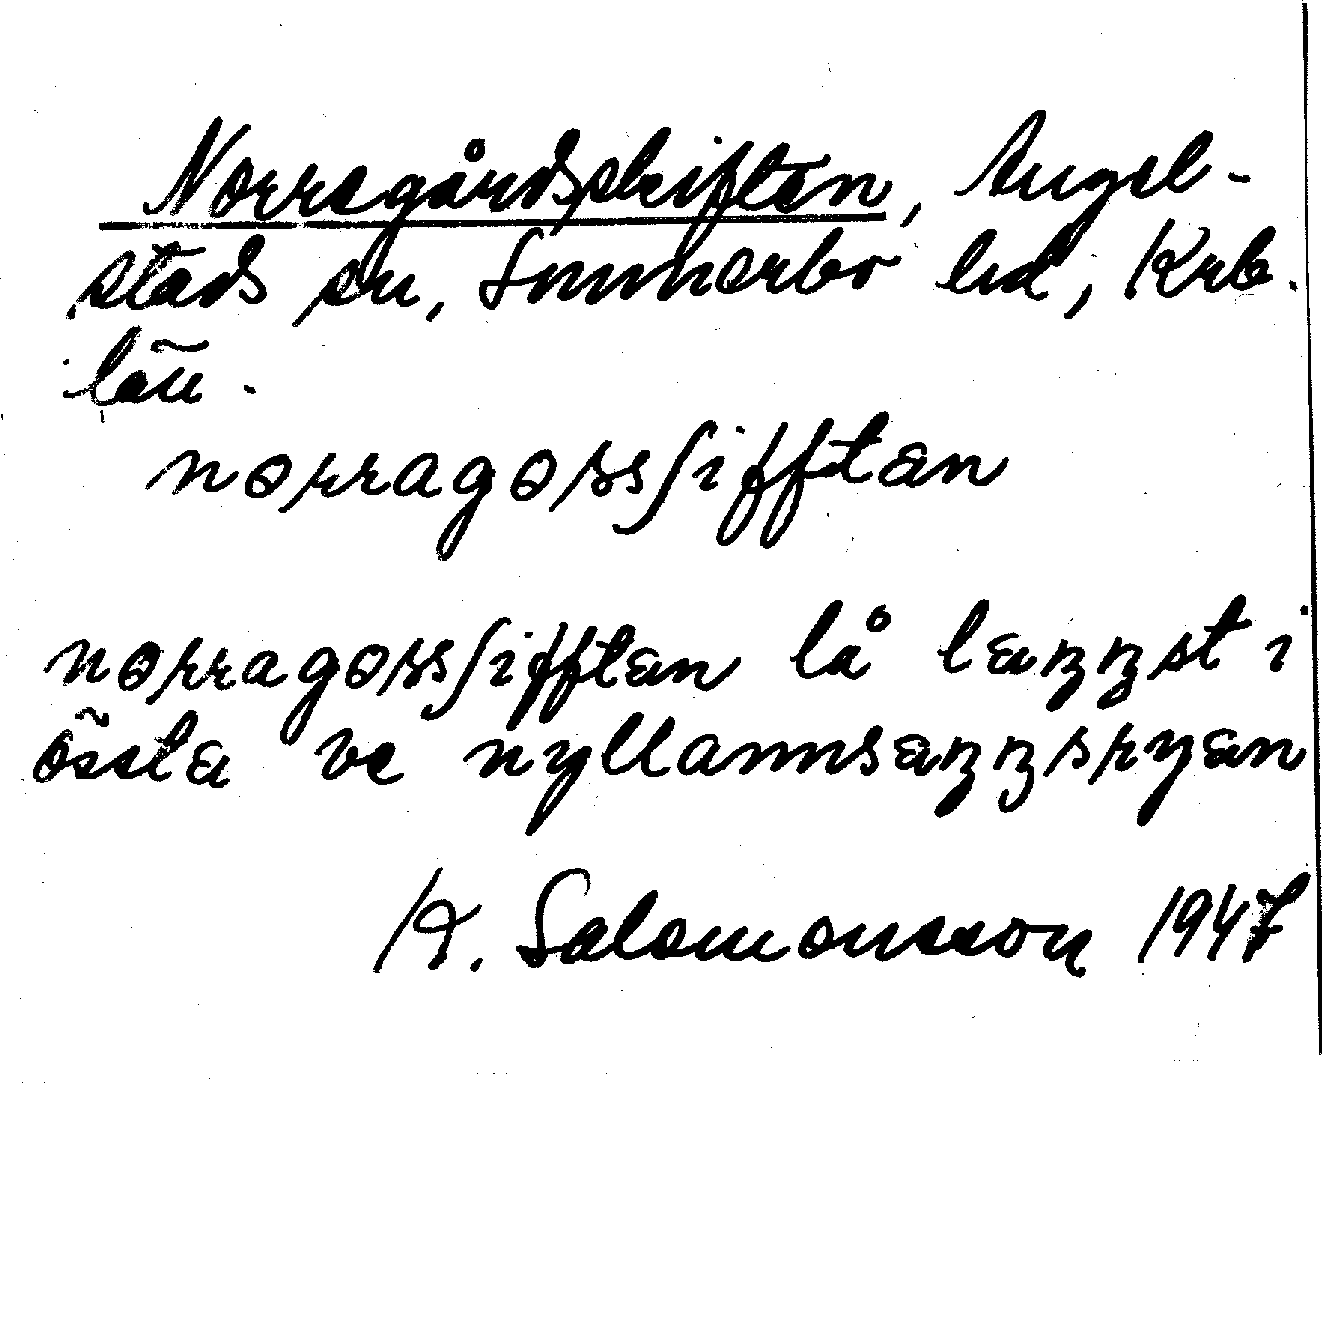 Norregårdskiften, Angel-
stads sn, Sunnerbo hd, Krb.
län.
nɵrragɵssʃifftæn
nɵrragɵssʃifftæn lå læŋŋst i
össta ve nyllannsæŋŋsryæn
K. Salomonsson 1947